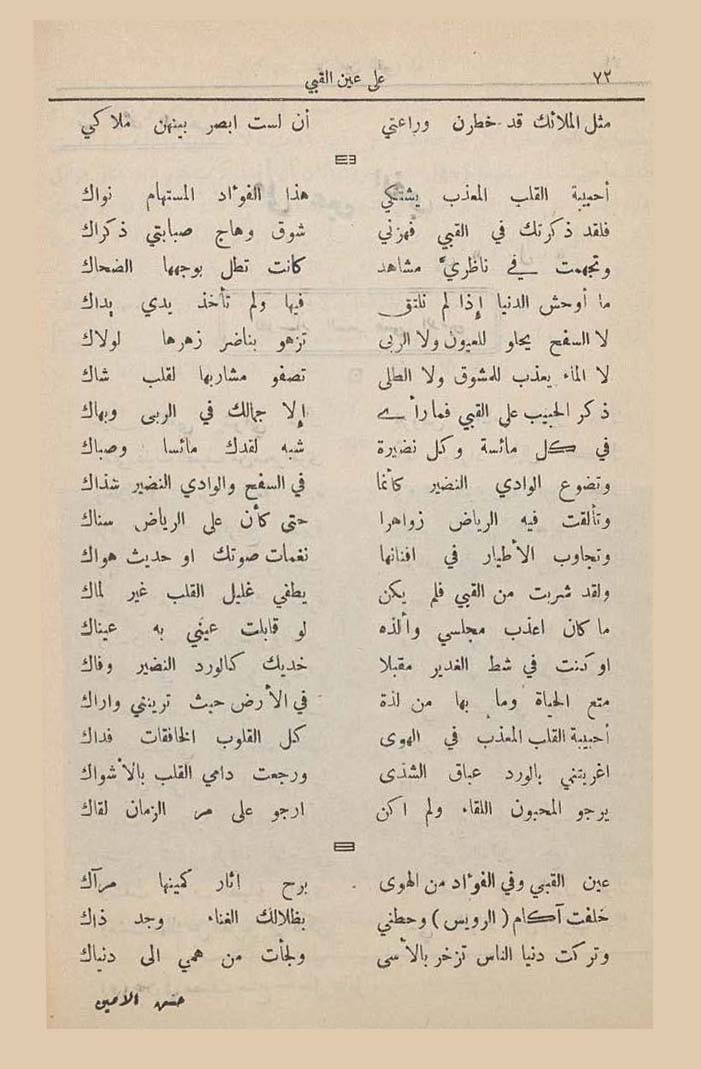 ٧٢
على عين القبي
مثل الملائك قد خطرن وراعني أن لست ابصر بينهن ملاكي
أحبيبة القلب المعذب يشتكي هذا الفوءاد المستهام نواك
فلقد ذكرتك في القبي فهزني شوق وهاج صبابتي ذكراك
وتجهمت في ناظريَّ مشاهد كانت تطل بوجهها الضحاك
ما أوحش الدنيا إذا لم نلتق فيها ولم تأخذ يدي يداك
لا السفح يحلو للعيون ولا الربى تزهو بناضر زهرها لولاك
لا الماء يعذب للمشوق ولا الطلى تصفو مشاربها لقلب شاك
ذكر الحبيب على القبي فما رأى إلا جمالك في الربى وبهاك
في كل مائسة وكل نضيرة شبه لقدك مائسا وصباك
وتضوع الوادي النضير كأنما في السفح والوادي النضير شذاك
وتألقت فيه الرياض زواهرا حتى كأن على الرياض سناك
وتجاوب الأطيار في افنانها نغمات صوتك او حديث هواك
ولقد شربت من القبي فلم يكن يطفي غليل القلب غير لماك
ما كان اعذب مجلسي وألذه لو قابلت عيني به عيناك
او كنت في شط الغدير مقبلا خديك كالورد النضير وفاك
متع الحياة وما بها من لذة في الأرض حيث ترينني واراك
أحبيبة القلب المعذب في الهوى كل القلوب الخافقات فداك
اغريتني بالورد عباق الشذى ورجعت دامي القلب بالأشواك
يرجو المحبون اللقاء ولم اكن ارجو على مر الزمان لقاك
عين القبي وفي الفوءاد من الهوى برح اثار كمينها مرآك
خلفت آكام (الرويس) وحطني بظلالك الغناء وجد ذاك
وتركت دنيا الناس تزخر بالأسى ولجأت من همي الى دنياك
حسن الامين